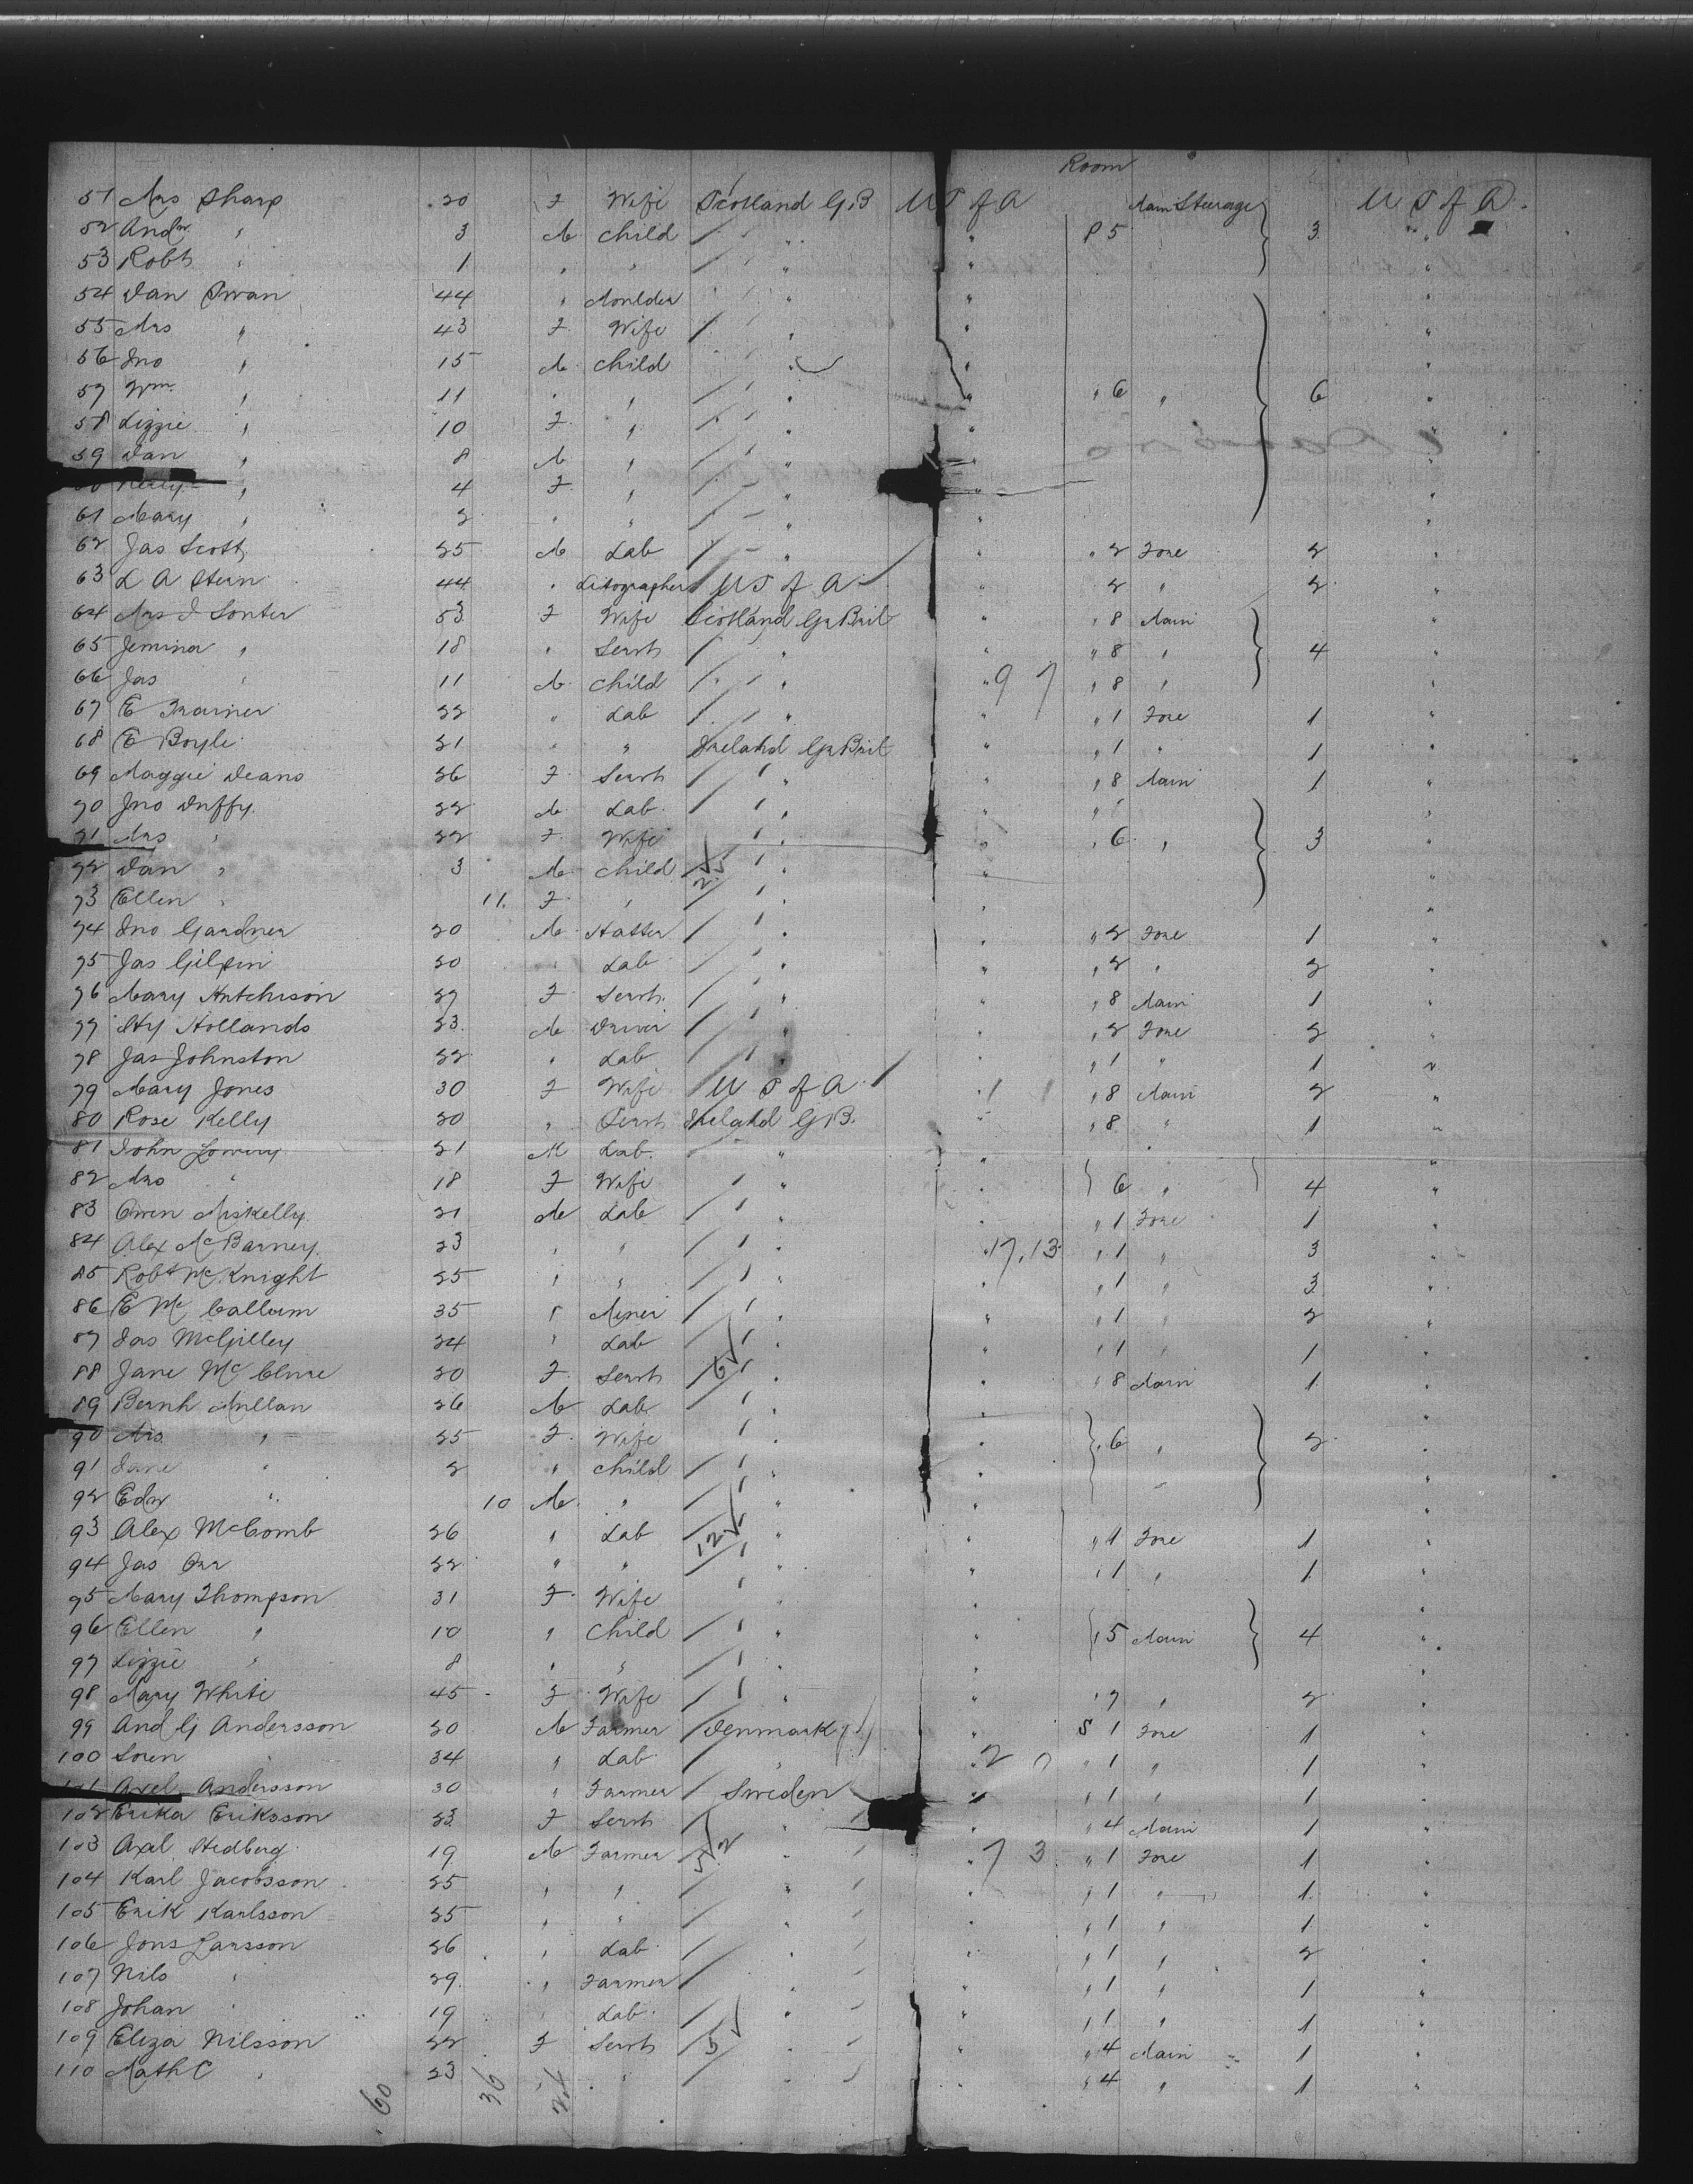 Room
51 Mrs Sharp 20 F Wife Scotland G.B U S of A Main Steerage U S of A.
52 Andw " 3 M Child " " P 5 3 "
53 Robt " 1 " " " " "
54 Dan Swan 44 " Moulder " " "
55 Mrs " 43 F Wife " " "
56 Jno " 15 M Child " " "
57 Wm " 11 " " " " " 6 " 6 "
58 Lizzie " 10 F " " " "
59 Dan " 8 M " " " "
" 4 F " " " "
61 Mary " 2 " " " " "
62 Jas Scott 25 M Lab " " " 2 Fore 2 "
63 L A Stern 44 " Litographer U S of A " 2 " 2 "
64 Mrs J Souter 53 F Wife Scotland Gr Brit " " 8 Main "
65 Jemina " 18 " Servt " " " 8 " 4 "
66 Jas " 11 M Child " " 9 7 " 8 " "
67 E Trainer 22 " Lab " " " 1 Fore 1 "
68 E Boyle 21 " " Ireland Gr Brit " " 1 " 1 "
69 Maggie Deans 26 F Servt " " " 8 Main 1 "
70 Jno Duffy 22 M Lab " " " "
71 Mrs " 22 F Wife " " " 6 " 3 "
72 Dan " 3 M Child " " "
73 Ellen " 11 F " " " "
74 Jno Gardner 20 M Hatter " " " 2 Fore 1 "
75 Jas Gilpin 20 " Lab " " " 2 " 2 "
76 Mary Hutchison 27 F Servt " " " 8 Main 1 "
77 Hy Hollands 23 M Driver " " " 2 Fore 2 "
78 Jas Johnston 22 " Lab " " " 1 " 1 "
79 Mary Jones 30 F Wife U S of A 1 1 " 8 Main 2 "
80 Rose Kelly 20 " Servt Ireland G B. " " 8 " 1 "
81 John Lowery 21 M Lab " " "
82 Mrs " 18 F Wife " " 6 " 4 "
83 Owen Miskelly 21 M Lab " " " 1 Fore 1 "
84 Alex McBarney 23 " " " 17.13 " 1 " 3 "
85 Robt McKnight 25 " " " " " 1 " 3 "
86 E McCallum 35 " Miner " " " 1 " 2 "
87 Jas McGilley 24 " Lab " " " 1 " 1 "
88 Jane McClure 20 F Servt " " " 8 Main 1 "
89 Bernh Mullan 26 M Lab " " "
90 Mrs " 25 F Wife " " " 6 " 2 "
91 Jane " 2 " Child " " "
92 Edw " 10 M " " " "
93 Alex McComb 26 " Lab " " " 1 Fore 1 "
94 Jas Orr 22 " " " " " 1 " 1 "
95 Mary Thompson 31 F Wife " " "
96 Ellen " 10 " Child " " " 5 Main 4 "
97 Lizzie " 8 " " " " "
98 Mary White 45 F Wife " " " 7 " 2 "
99 And G Andersson 20 M Farmer Denmark " S 1 Fore 1 "
100 Soren " 34 " Lab " 2 " 1 " 1 "
101 Axel Andersson 30 " Farmer Sweden " " 1 " 1 "
102 Erika Eriksson 23 F Servt " " " 4 Main 1 "
103 Axel Hedberg 19 M Farmer " 7 3 " 1 Fore 1 "
104 Karl Jacobsson 25 " " " " " 1 " 1 "
105 Erik Karlsson 25 " " " " " 1 " 1 "
106 Jons Larsson 26 " Lab " " " 1 " 2 "
107 Nils " 29 " Farmer " " " 1 " 1 "
108 Johan " 19 " Lab " " " 1 " 1 "
109 Eliza Nilsson 22 F Servt " " " 4 Main 1 "
110 Math C " 23 " " " " " 4 " 1 "
60 36